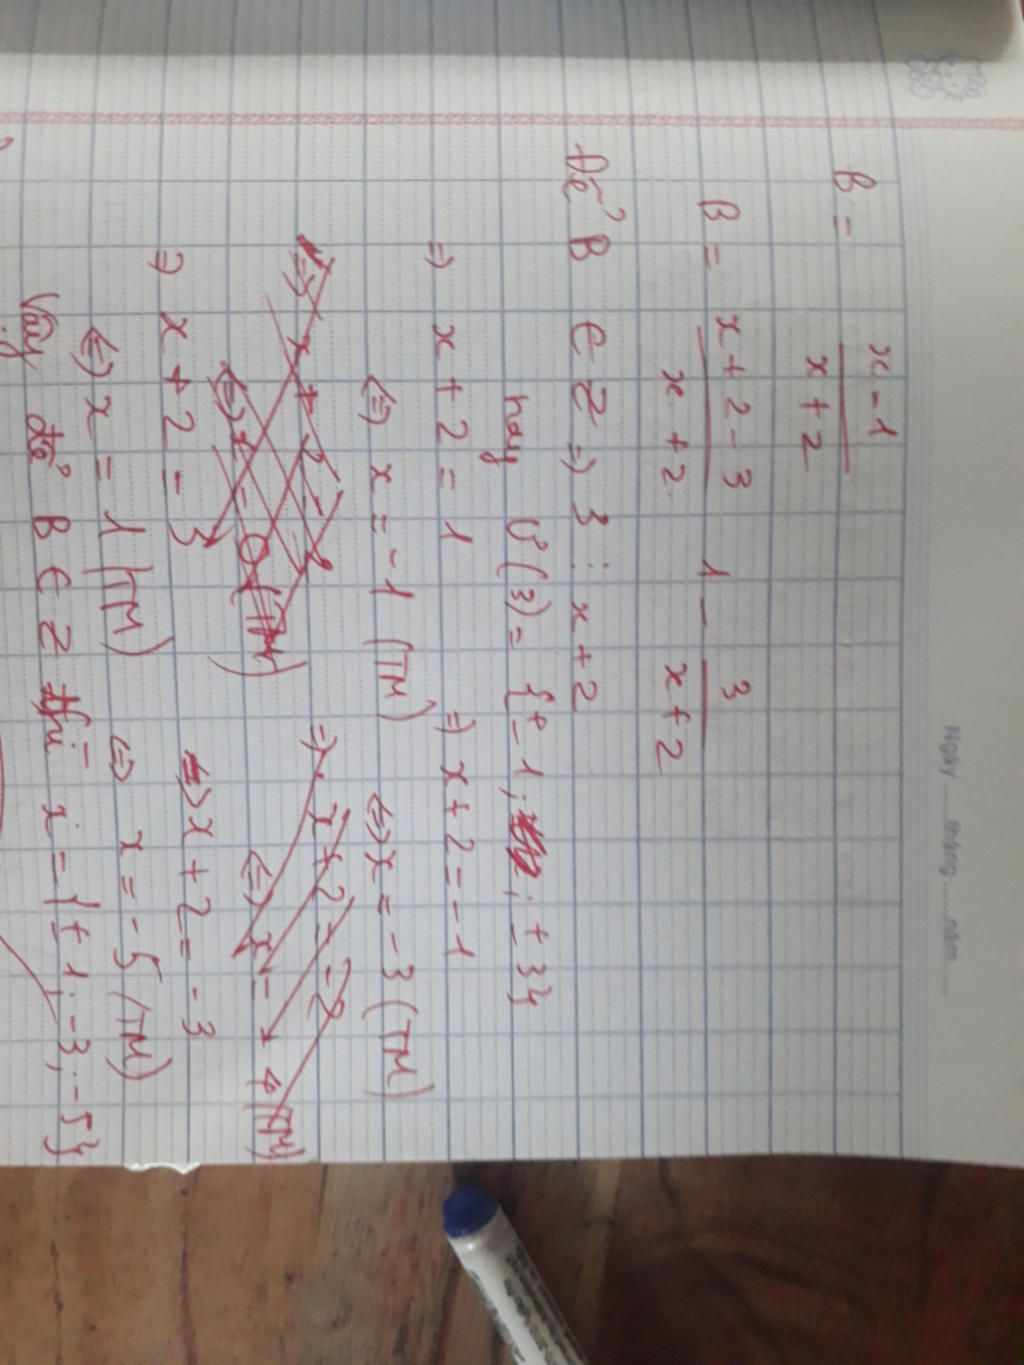 Ngày ...... tháng ...... năm ......
B = x - 1 / x + 2
B = x + 2 - 3 / x + 2 1 - 3 / x + 2
Để B ∈ Z => 3 ⋮ x + 2
hay Ư(3) = {± 1; ; ± 3}
=> x + 2 = 1 => x + 2 = -1
<=> x = -1 (TM) <=> x = -3 (TM)
=> x + 2 = => x + 2 = -2
<=> x = 0 (TM) <=> x = - 4 (TM)
=> x + 2 = 3 => x + 2 = -3
<=> x = 1 (TM) <=> x = -5 (TM)
Vậy để B ∈ Z thì x = {± 1; -3; -5}